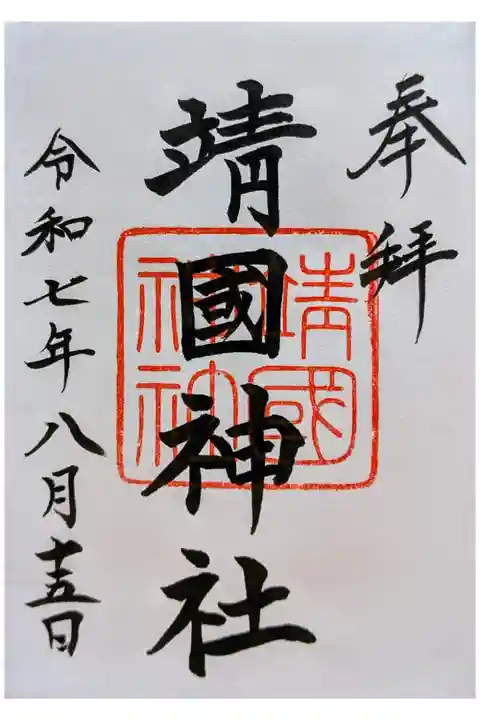 奉拝
靖國神社
靖國
神社
令和七年八月十五日